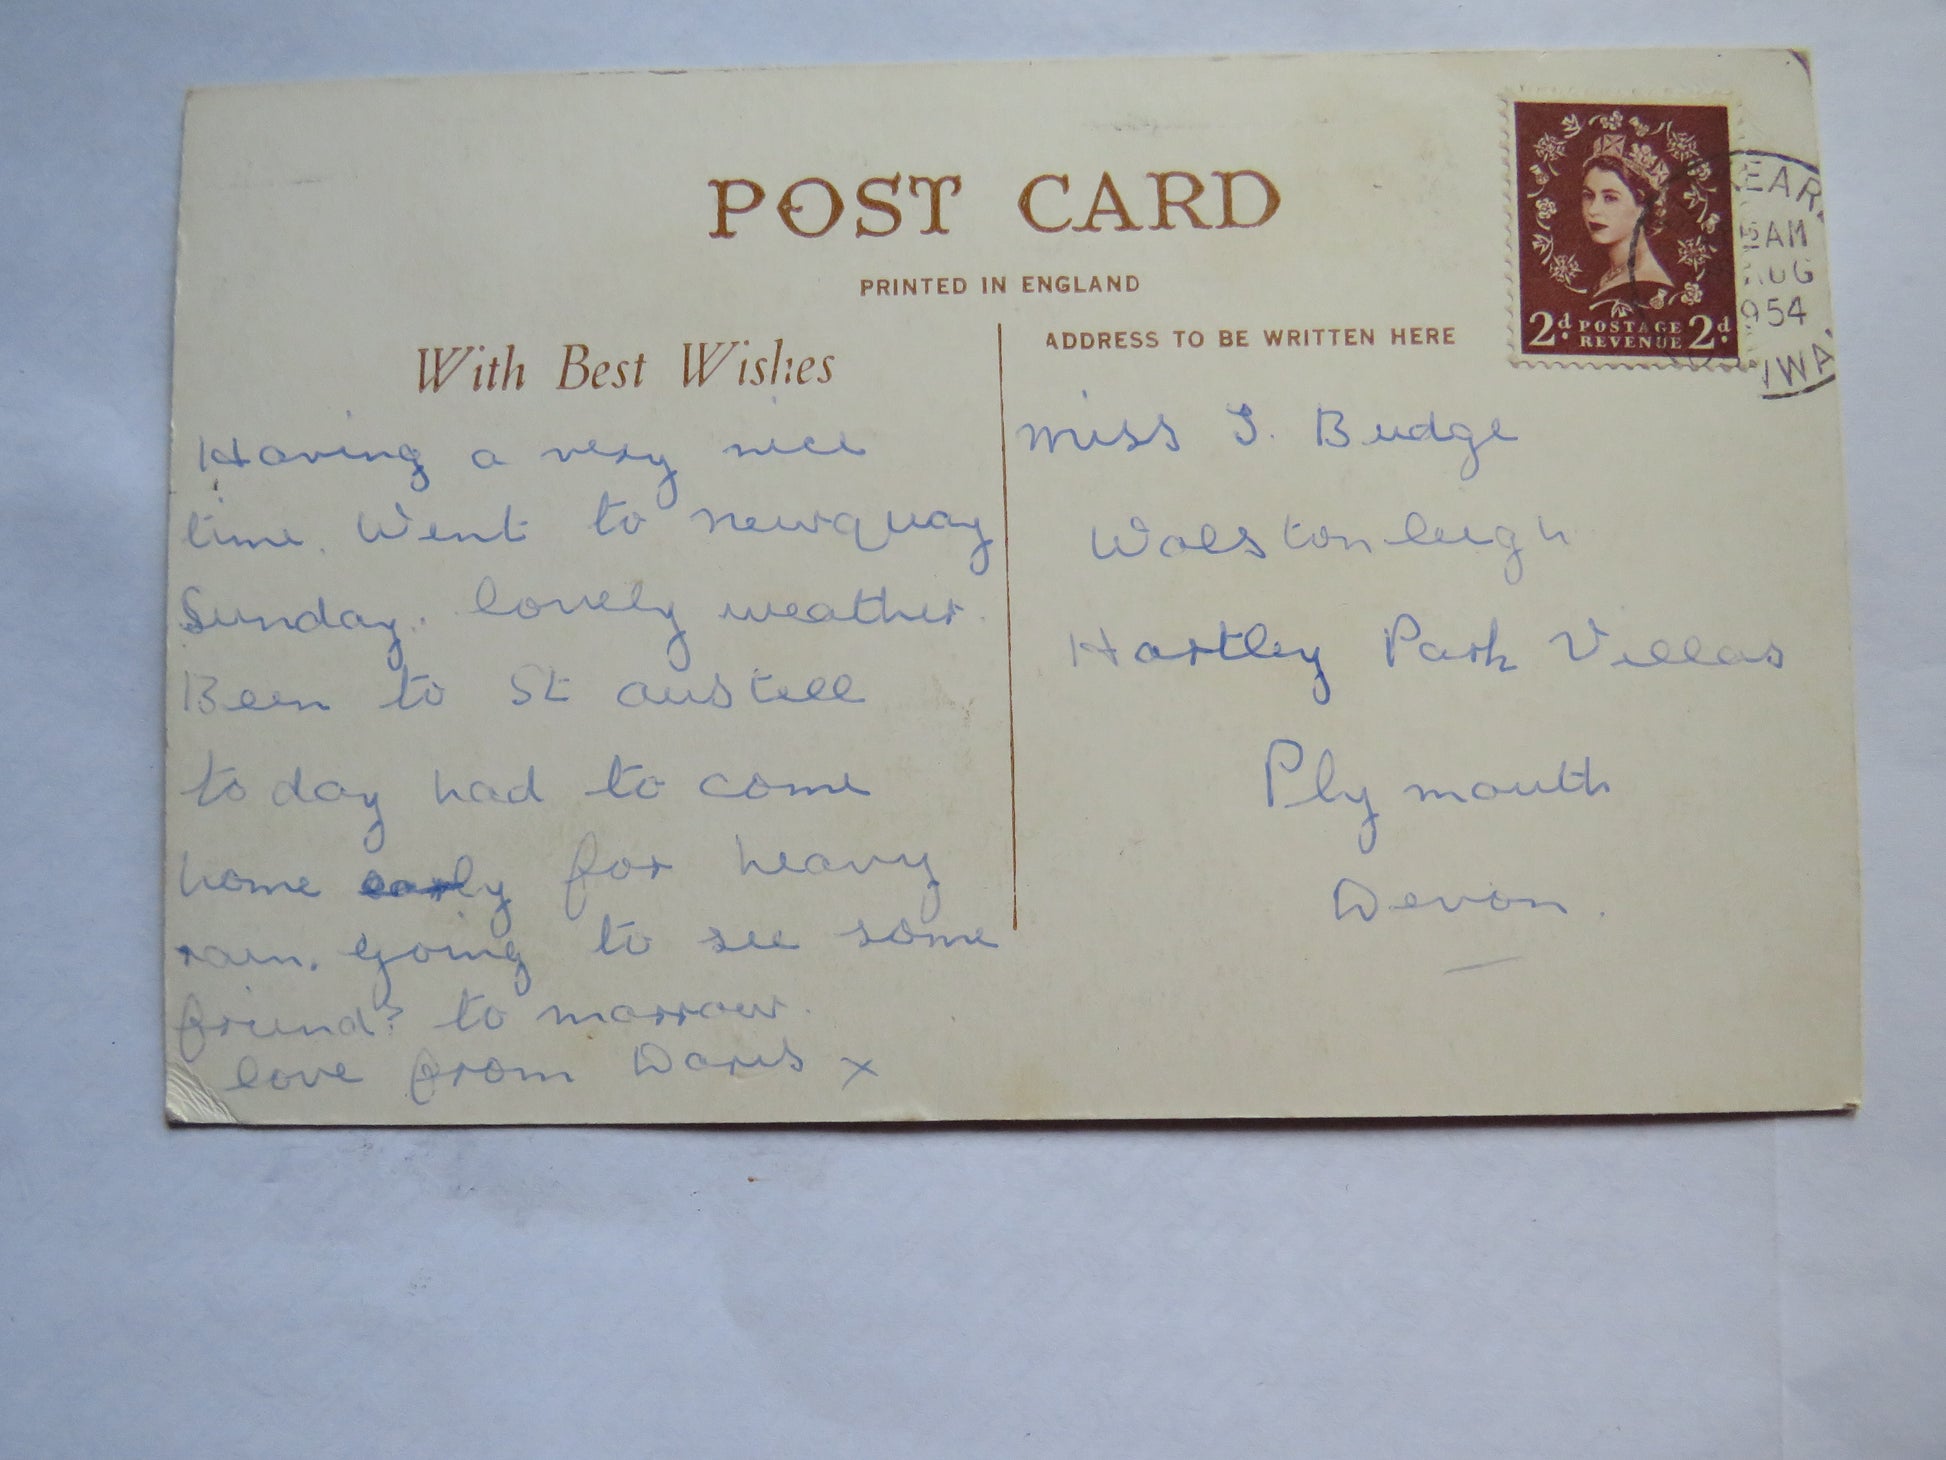 POST CARD
PRINTED IN ENGLAND
With Best Wishes
Having a very nice
time. Went to newquay
Sunday. lovely weather.
Been to St austell
to day had to come
home early for heavy
rain. going to see some
friends to morrow.
love from Doris x
ADDRESS TO BE WRITTEN HERE
miss J. Budge
Hartley Park Villas
Plymouth
Devon.
2d POSTAGE REVENUE 2d
EAR
15 AM
AUG
1954
NWA